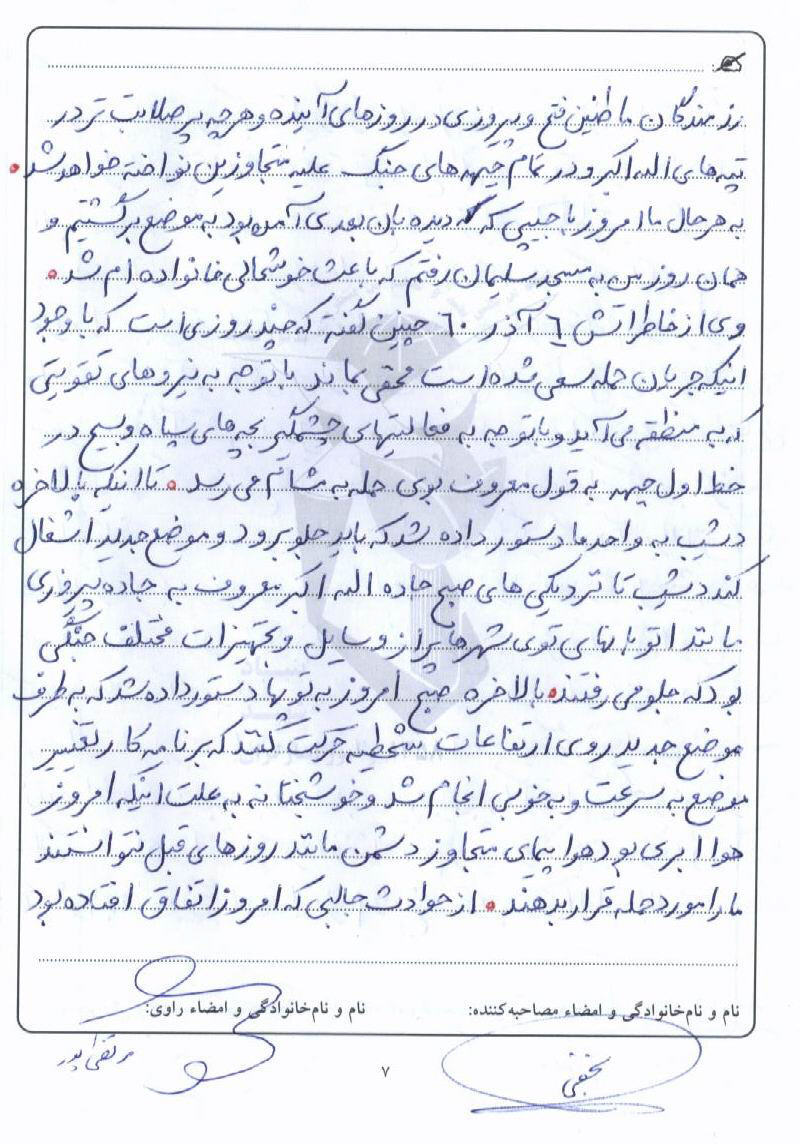 رزمندگان ما طنین فتح و پیروزی در روزهای آینده و هر چه پر صلابت تر در
تپه های الله اکبر و در تمام جبهه های جنگ علیه متجاوزین نواخته خواهد شد.
به هر حال ما امروز با جیپی که دیده بان بعدی آمده بود به موضع برگشتیم و
همان روز من به مسجد سلیمان رفتم که باعث خوشحالی خانواده ام شد.
وی از خاطراتش ٦ آذر ٦٠ چنین گفته که چند روزی است که با وجود
اینکه جریان حمله سعی شده است مخفی بماند با توجه به نیروهای تقویتی
که به منطقه می آید و با توجه به فعالیتهای چشمگیر بچه های سپاه و بسیج در
خط اول جبهه به قول معروف بوی حمله به مشام می رسد. تا اینکه بالاخره
دیشب به واحد ما دستور داده شد که باید جلو برود و موضع جدید اشغال
کند دیشب تا نزدیکی های صبح جاده الله اکبر معروف به جاده پیروزی
مانند اتوبانهای توی شهرها پر از وسایل و تجهیزات مختلف جنگی
بود که جلو می رفتند. بالاخره صبح امروز به توپها دستور داده شد که به طرف
موضع جدید روی ارتفاعات شحیطیه حرکت کنند که برنامه کار تغییر
موضع به سرعت و به خوبی انجام شد و خوشبختانه به علت اینکه امروز
هوا ابری بود هواپیمای متجاوز دشمن مانند روزهای قبل نتوانستند
ما را مورد حمله قرار بدهند. از حوادث جالبی که امروز اتفاق افتاده بود
نام و نام‌خانوادگی و امضاء مصاحبه‌کننده: نام و نام‌خانوادگی و امضاء راوی:
نجفی مرتضی پور
۷